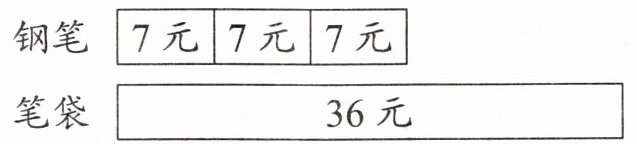 钢笔 7元 7元 7元
笔袋 36元